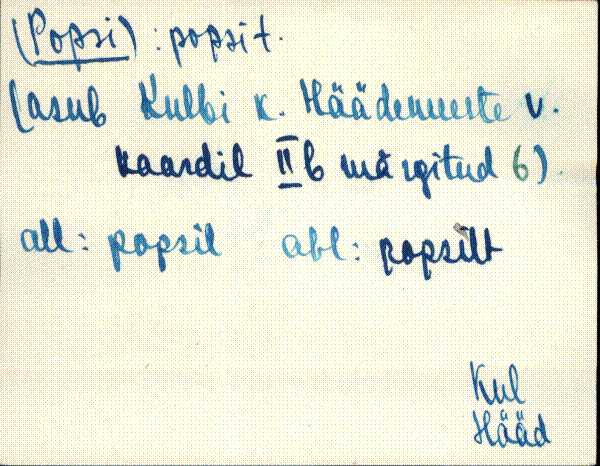 (Popsi) : popsit.
(asub Kulbi k. Häädemeeste v.
kaardil II b märgitud 6).
all: popsil abl: popsilt
Kul
Hääd